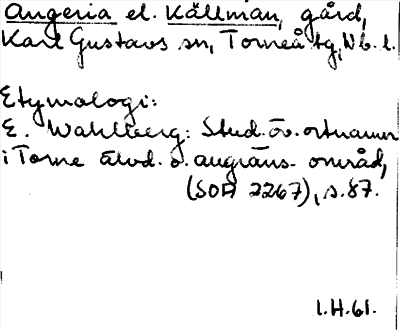 Angeria el. Källman, gård,
Karl Gustavs sn, Torneå tg, Nb. l.
Etymologi:
E. Wahlberg: Stud. öv. ortnamn
i Torne älvd. o. angräns. område,
(SOA 2267), s. 87.
I.H.61.